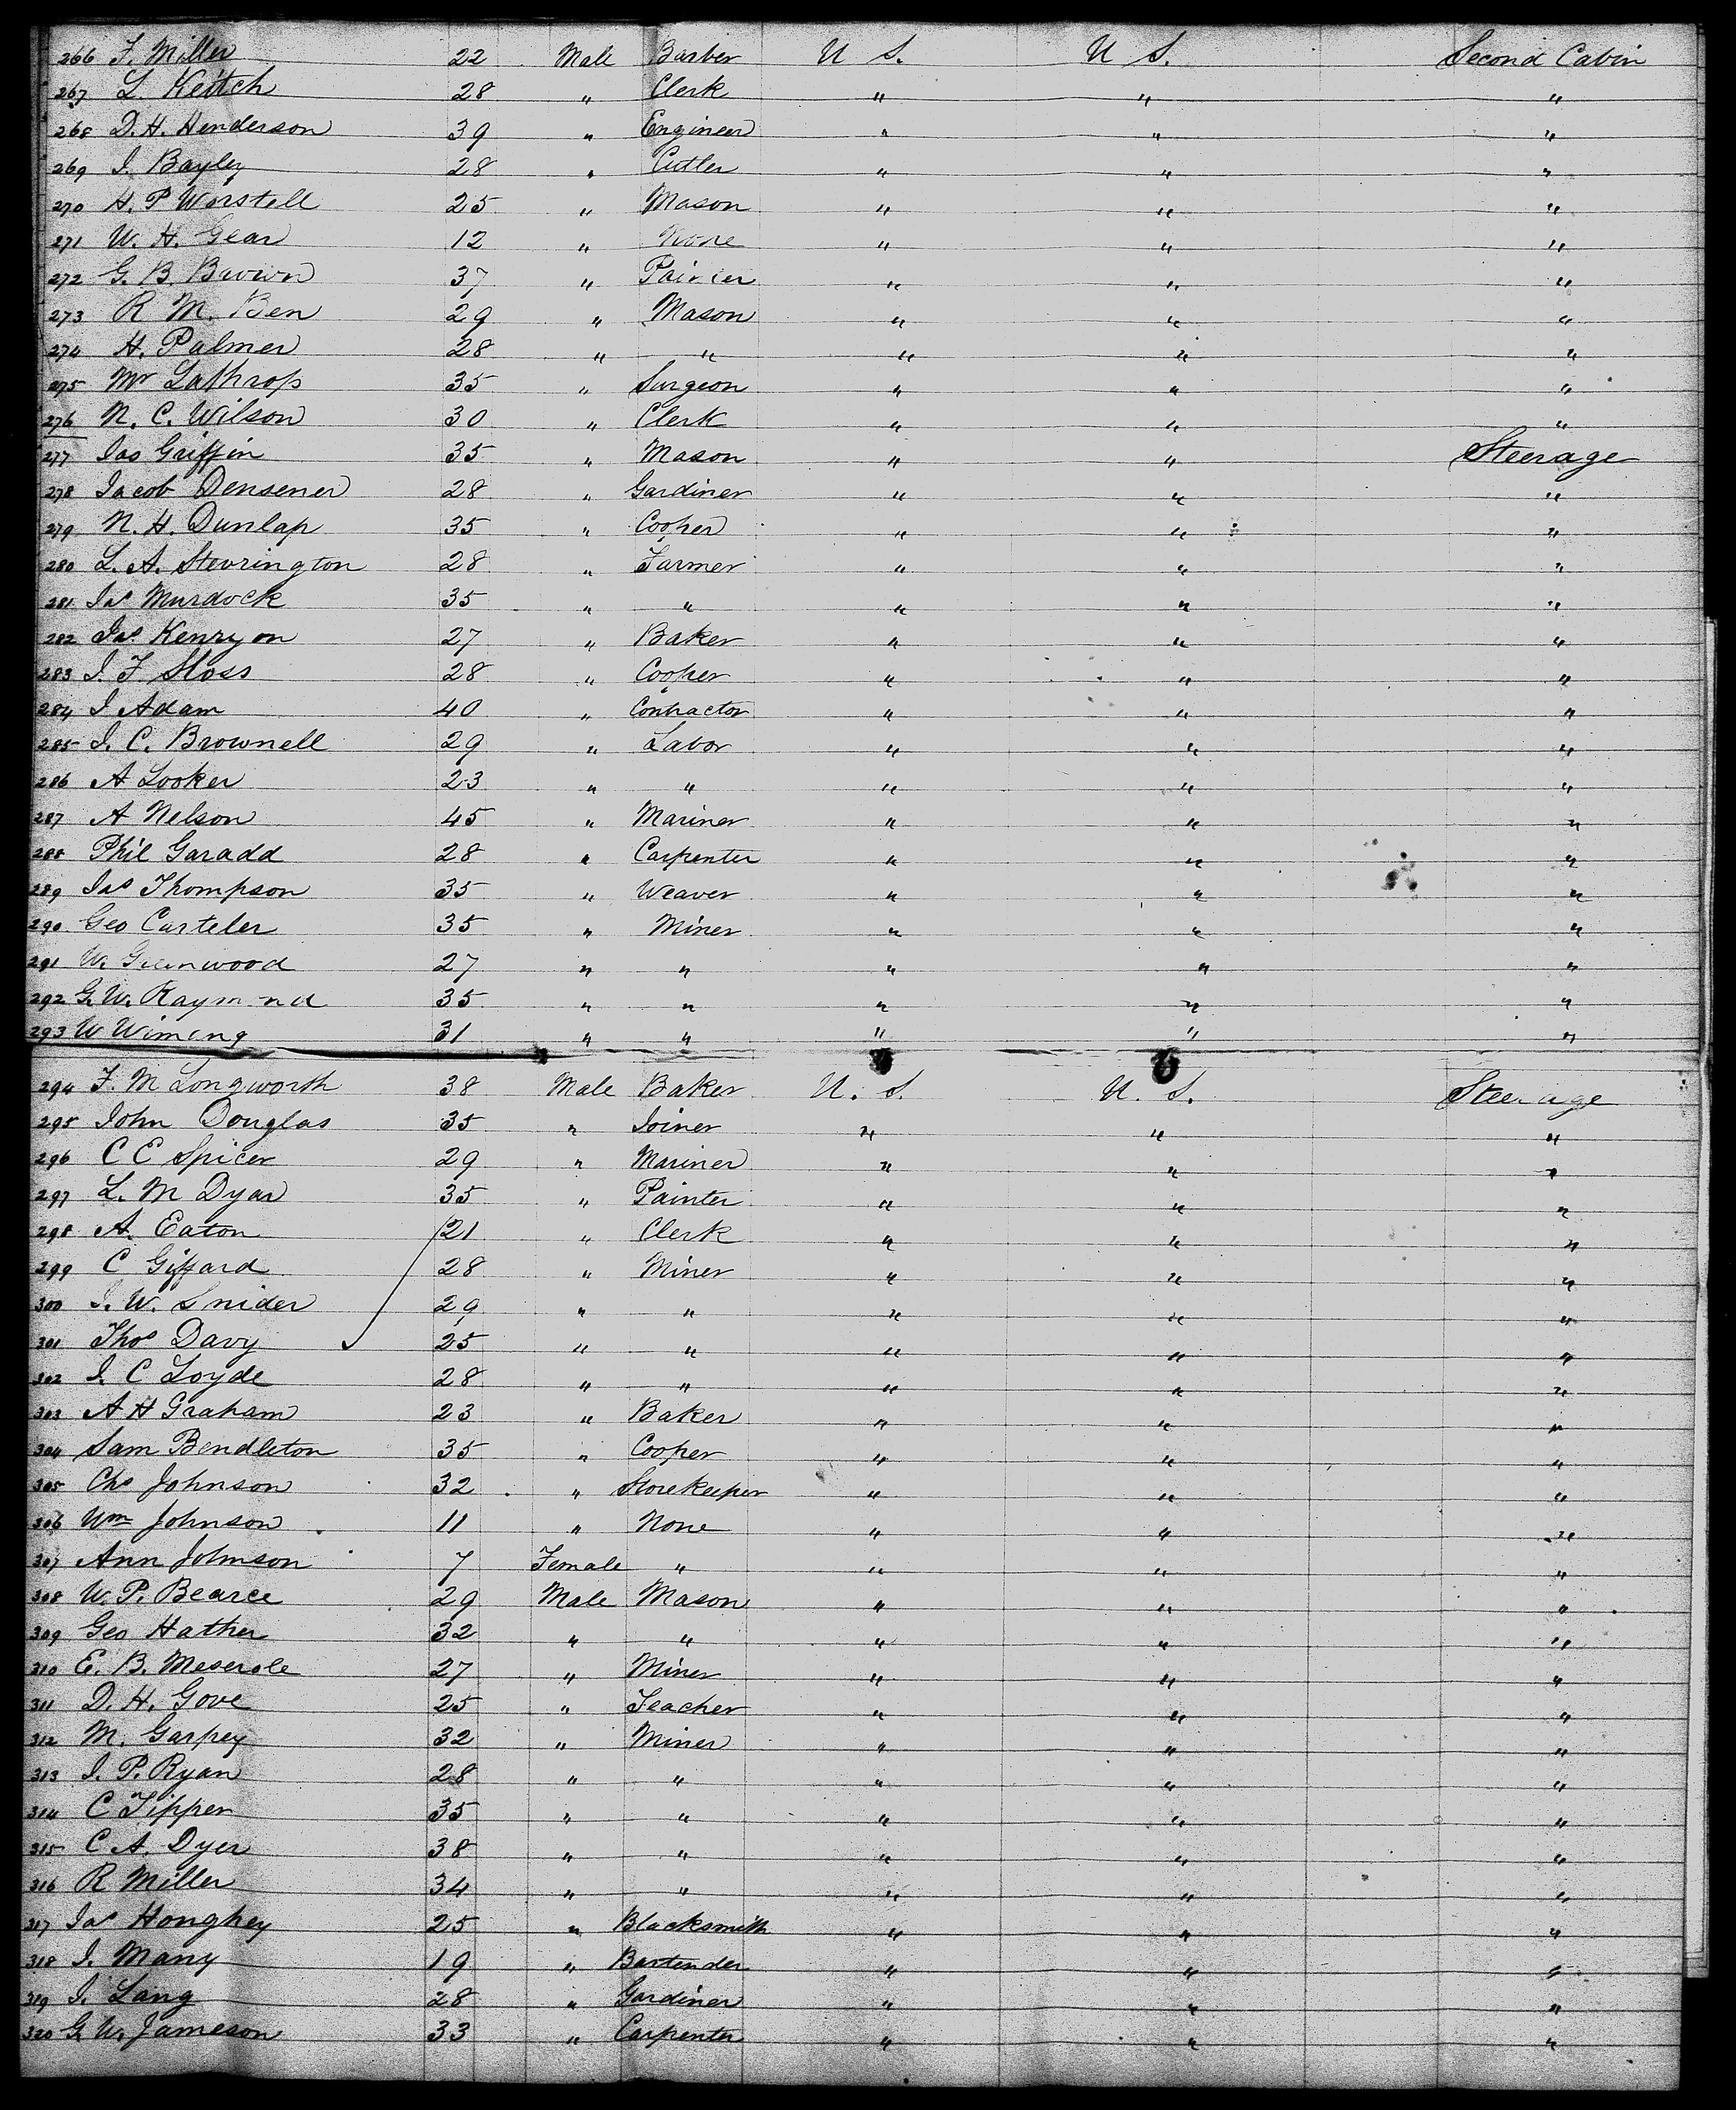 266 F. Miller 22 Male Barber U S. U S. Second Cabin
267 L. Keitch 28 " Clerk " " "
268 D. H. Henderson 39 " Engineer " " "
269 I. Bayley 28 " Cutler " " "
270 H. P Worstell 25 " Mason " " "
271 W. H. Gear 12 " None " " "
272 G. B. Brown 37 " Painter " " "
273 R M. Ben 29 " Mason " " "
274 H. Palmer 28 " " " " "
275 Mr Lathrop 35 " Surgeon " " "
276 N. C. Wilson 30 " Clerk " " "
277 Jas Griffin 35 " Mason " " Steerage
278 Jacob Densener 28 " Gardiner " " "
279 N. H. Dunlap 35 " Cooper " " "
280 L. A. Stevrington 28 " Farmer " " "
281 Jas Murdock 35 " " " " "
282 Jas Kenryon 27 " Baker " " "
283 I. F Sloss 28 " Cooper " " "
284 I Adam 40 " Contractor " " "
285 I. C. Brownell 29 " Labor " " "
286 A Looker 23 " " " " "
287 A Nelson 45 " Mariner " " "
288 Phil Garadd 28 " Carpenter " " "
289 Jas Thompson 35 " Weaver " " "
290 Geo Carteler 35 " Miner " " "
291 W. Greenwood 27 " " " " "
292 G. W. Raymond 35 " " " " "
293 W 31 " " " " "
294 F. M Longworth 38 Male Baker U. S. U. S. Steerage
295 John Douglas 35 " Joiner " " "
296 C E Spicer 29 " Mariner " " "
297 L. M Dyar 35 " Painter " " "
298 A. Eaton 21 " Clerk " " "
299 C Giffard 28 " Miner " " "
300 I. W. Snider 29 " " " " "
301 Thos Davy 25 " " " " "
302 I. C Loyde 28 " " " " "
303 A H Graham 23 " Baker " " "
304 Sam Bendleton 35 " Cooper " " "
305 Chs Johnson 32 " Storekeeper " " "
306 Wm Johnson 11 " None " " "
307 Ann Johnson 7 Female " " " "
308 W. P. Bearce 29 Male Mason " " "
309 Geo Hather 32 " " " " "
310 E. B. Meserole 27 " Miner " " "
311 D. H. Gove 25 " Teacher " " "
312 M. Garpey 32 " Miner " " "
313 I. P. Ryan 28 " " " " "
314 C Tipper 35 " " " " "
315 C A. Dyer 38 " " " " "
316 R Miller 34 " " " " "
317 Jas Honghey 25 " Blacksmith " " "
318 I. Many 19 " Bartender " " "
319 I. Lang 28 " Gardiner " " "
320 G. W. Jameson 33 " Carpenter " " "